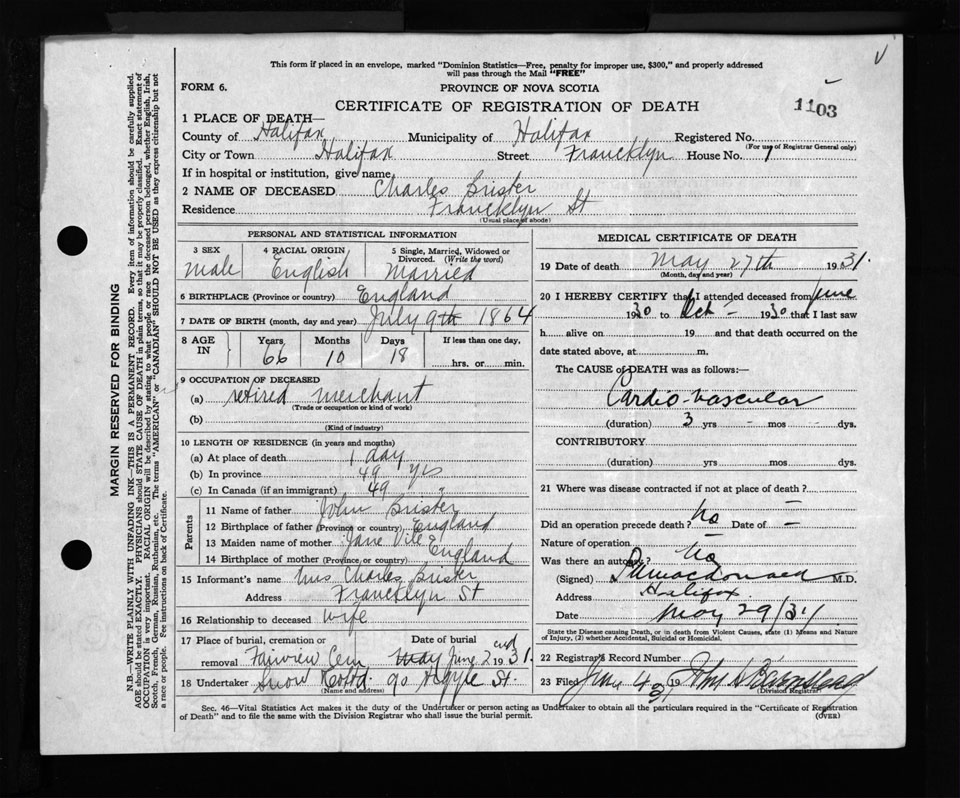 This form if placed in an envelope, marked "Dominion Statistics—Free, penalty for improper use, $300," and properly addressed
will pass through the Mail "FREE"
FORM 6.
PROVINCE OF NOVA SCOTIA
CERTIFICATE OF REGISTRATION OF DEATH
1103
1 PLACE OF DEATH—
County of Halifax Municipality of Halifax Registered No.
(For use of Registrar General only)
City or Town Halifax Street Francklyn House No. 1
If in hospital or institution, give name
2 NAME OF DECEASED Charles Brister
Residence Francklyn St
(Usual place of abode)
PERSONAL AND STATISTICAL INFORMATION
3 SEX 4 RACIAL ORIGIN 5 Single, Married, Widowed or
Divorced. (Write the word)
Male English Married
6 BIRTHPLACE (Province or country) England
7 DATE OF BIRTH (month, day and year) July 9th 1864
8 AGE IN Years Months Days If less than one day,
66 10 18 hrs. or min.
9 OCCUPATION OF DECEASED
(a) retired merchant
(Trade or occupation or kind of work)
(b)
(Kind of industry)
10 LENGTH OF RESIDENCE (in years and months)
(a) At place of death 1 day
(b) In province 49 yrs
(c) In Canada (if an immigrant) 49 "
Parents
11 Name of father John Brister
12 Birthplace of father (Province or country) England
13 Maiden name of mother Jane
14 Birthplace of mother (Province or country) England
15 Informant's name Mrs Charles Brister
Address Francklyn St
16 Relationship to deceased wife
17 Place of burial, cremation or Date of burial
removal Fairview Cem May June 2nd 1931.
18 Undertaker Snow & Co Ltd 90 Argyle St
(Name and address)
MEDICAL CERTIFICATE OF DEATH
19 Date of death May 27th 1931.
(Month, day and year)
20 I HEREBY CERTIFY that I attended deceased from June
1930 to Oct – 1930 that I last saw
h alive on 19 and that death occurred on the
date stated above, at m.
The CAUSE of DEATH was as follows:
Cardio-vascular
(duration) 3 yrs - mos - dys.
CONTRIBUTORY
(duration) yrs mos dys.
21 Where was disease contracted if not at place of death? –
Did an operation precede death? No Date of –
Nature of operation –
Was there an autopsy? No
(Signed) M.D.
Address Halifax.
Date May 29/31
State the Disease causing Death, or in death from Violent Causes, state (1) Means and Nature
of Injury, (2) whether Accidental, Suicidal or Homicidal.
22 Registrar's Record Number
23 Filed June 4 1931
(Division Registrar)
Sec. 46—Vital Statistics Act makes it the duty of the Undertaker or person acting as Undertaker to obtain all the particulars required in the "Certificate of Registration
of Death" and to file the same with the Division Registrar who shall issue the burial permit.
(OVER)
MARGIN RESERVED FOR BINDING
N.B.—WRITE PLAINLY WITH UNFADING INK—THIS IS A PERMANENT RECORD. Every item of information should be carefully supplied.
AGE should be stated EXACTLY. PHYSICIANS should STATE CAUSE OF DEATH in plain terms, so that it may be properly classified. Exact statement of
OCCUPATION is very important. RACIAL ORIGIN will be described by stating to what people or race the deceased person belonged, whether English, Irish,
Scotch, French, German, Russian, Ruthenian, etc. The terms "AMERICAN" or "CANADIAN" SHOULD NOT BE USED as they express citizenship but not
a race or people. See instructions on back of Certificate.